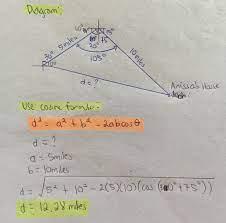 Diagram:
5miles
10miles
105°
d = ?
House
Use cosine formula:
d² = a² + b² - 2abcosθ
d = ?
a = 5miles
b = 10miles
d = √5² + 10² - 2(5)(10)(cos ( 0° + 75°)
d = 12,28 miles